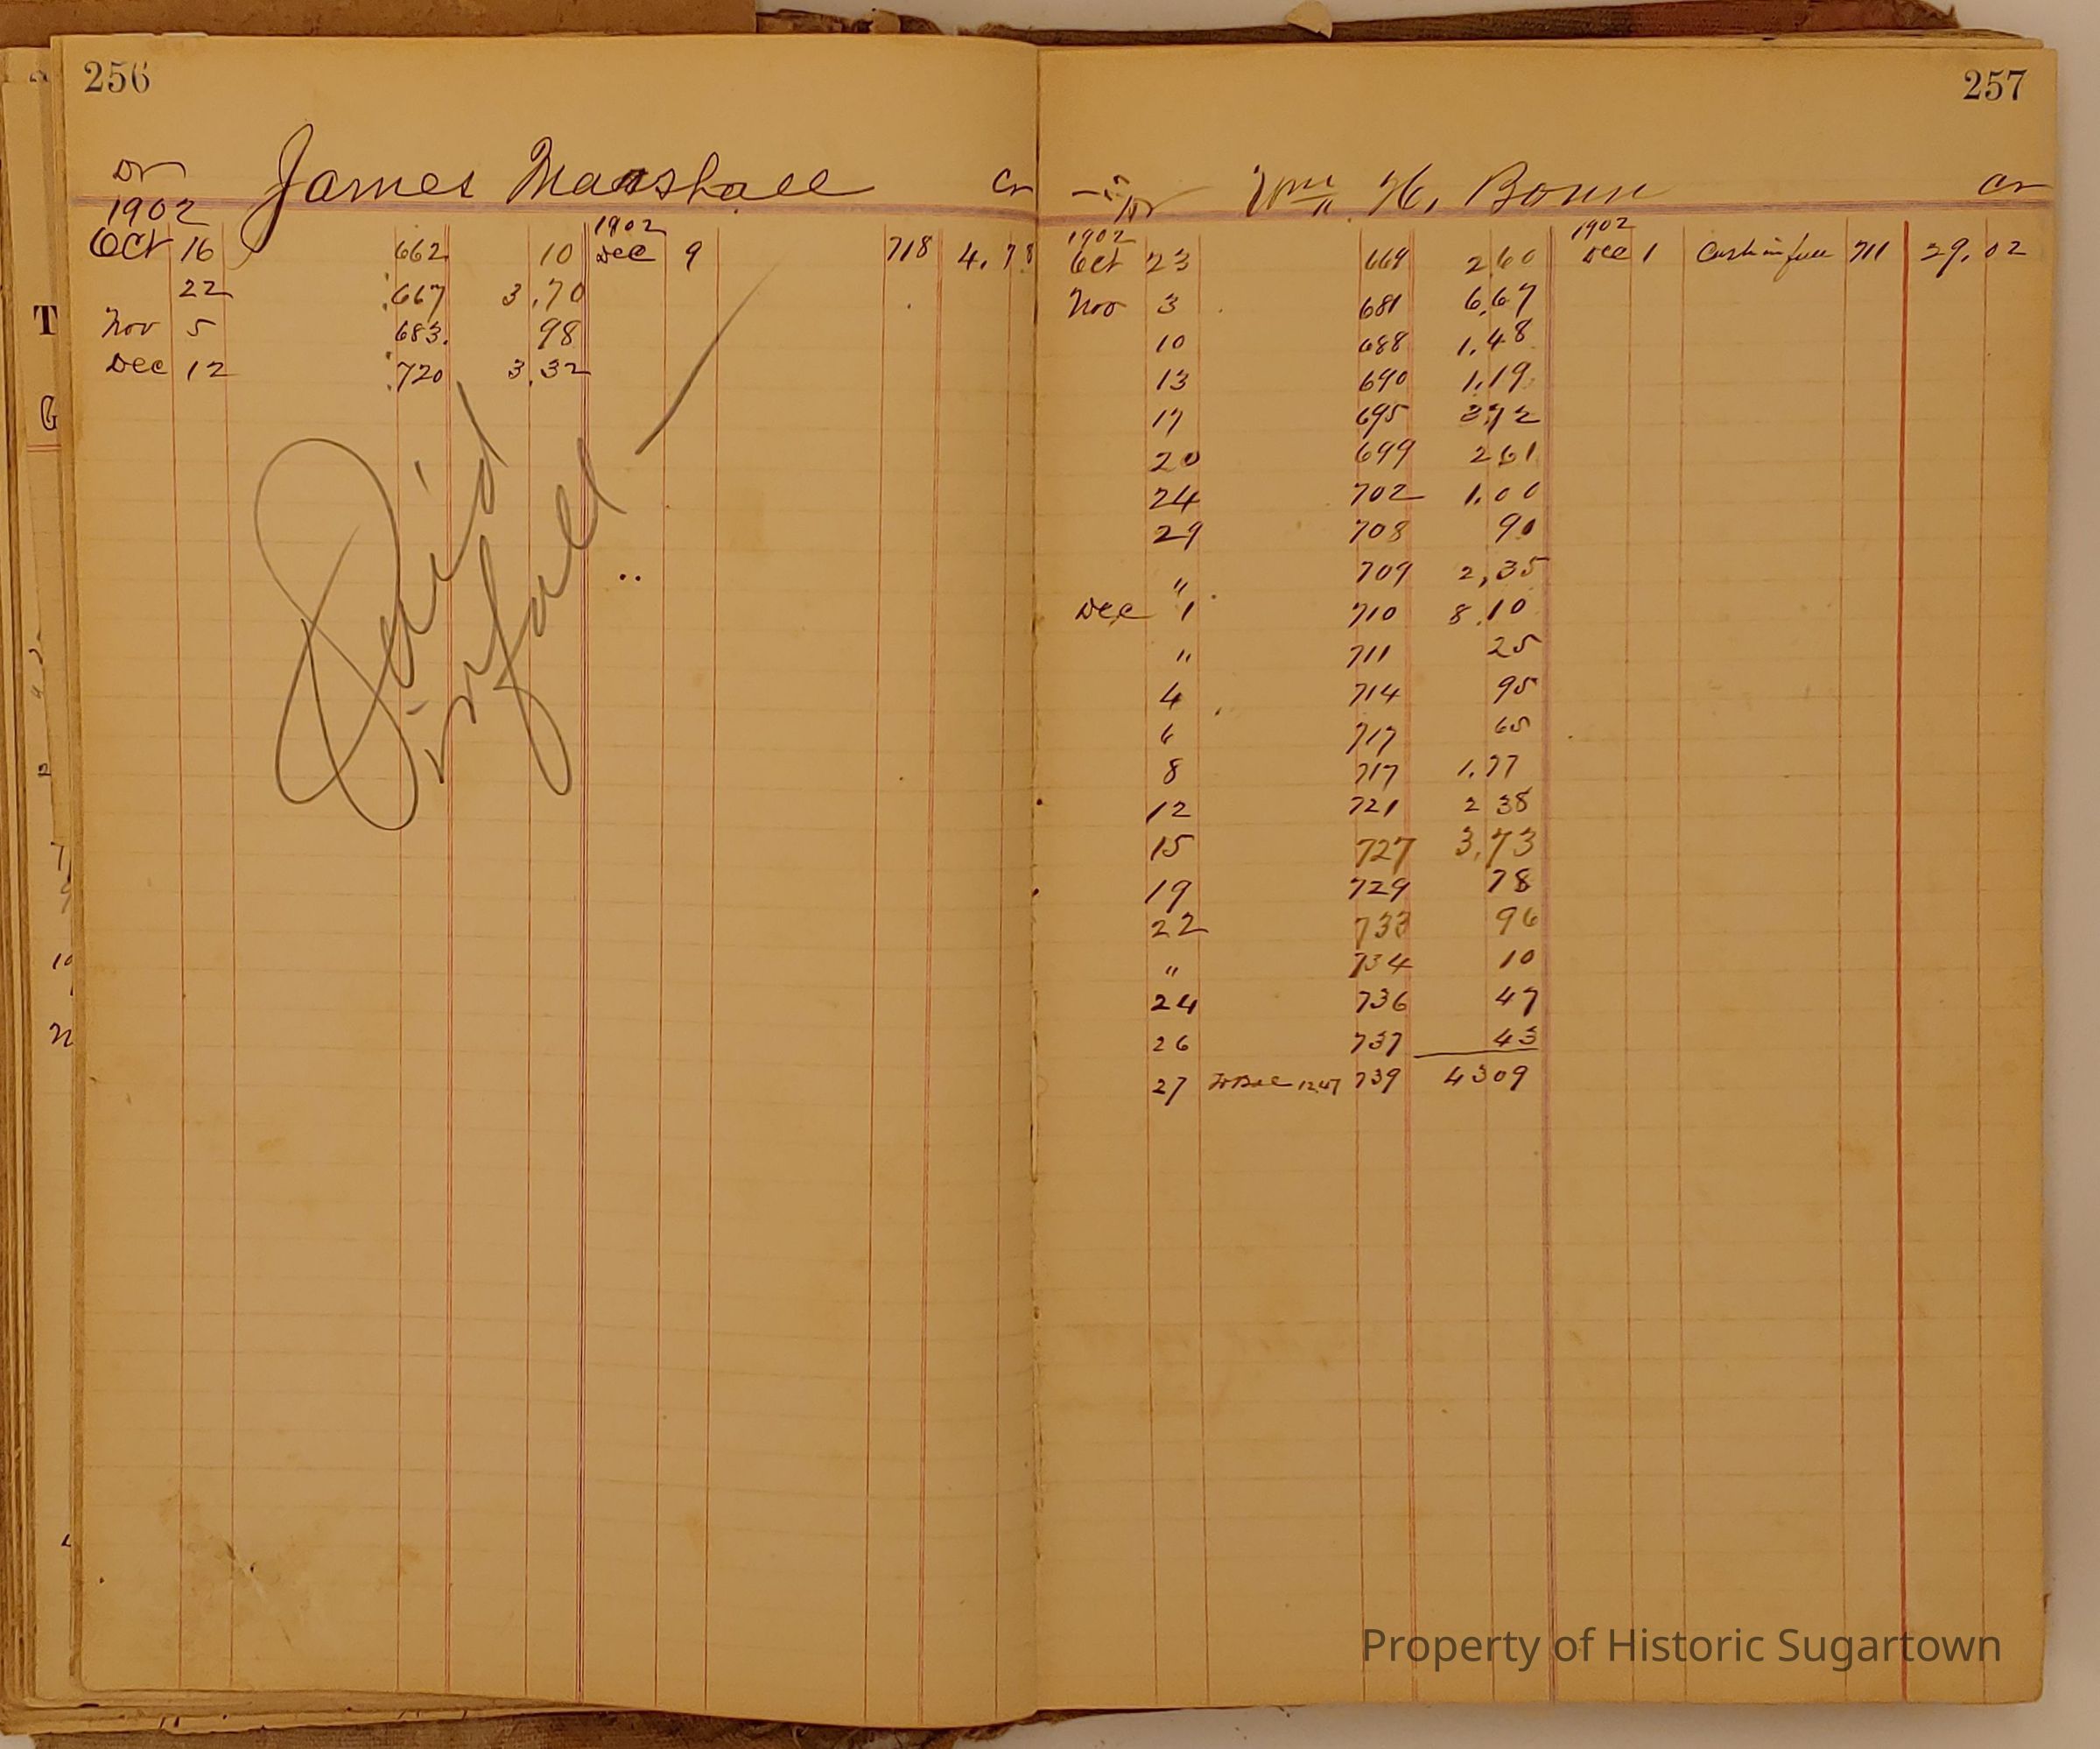 256
Dr James Marshall Cr
1902 1902
Oct 16 662 10 Dec 9 718 4.78
22 667 3.70
Nov 5 683. 98
Dec 12 720 3.32
Paid
in full
257
Dr Wm H. Cr
1902 1902
Oct 23 669 2 60 Dec 1 Cash in full 711 29.02
Nov 3 681 6.67
10 688 1.48
13 690 1.19
17 695
20 699 2 61
24 702 1.00
29 708 90
" 709 2,35
Dec 1 710 8.10
" 711 25
4 714 95
6 717 65
8 717 1.77
12 721 2 38
15 727 3.73
19 729 78
22 733 96
" 734 10
24 736 47
26 737 43
27 739 4309
Property of Historic Sugartown